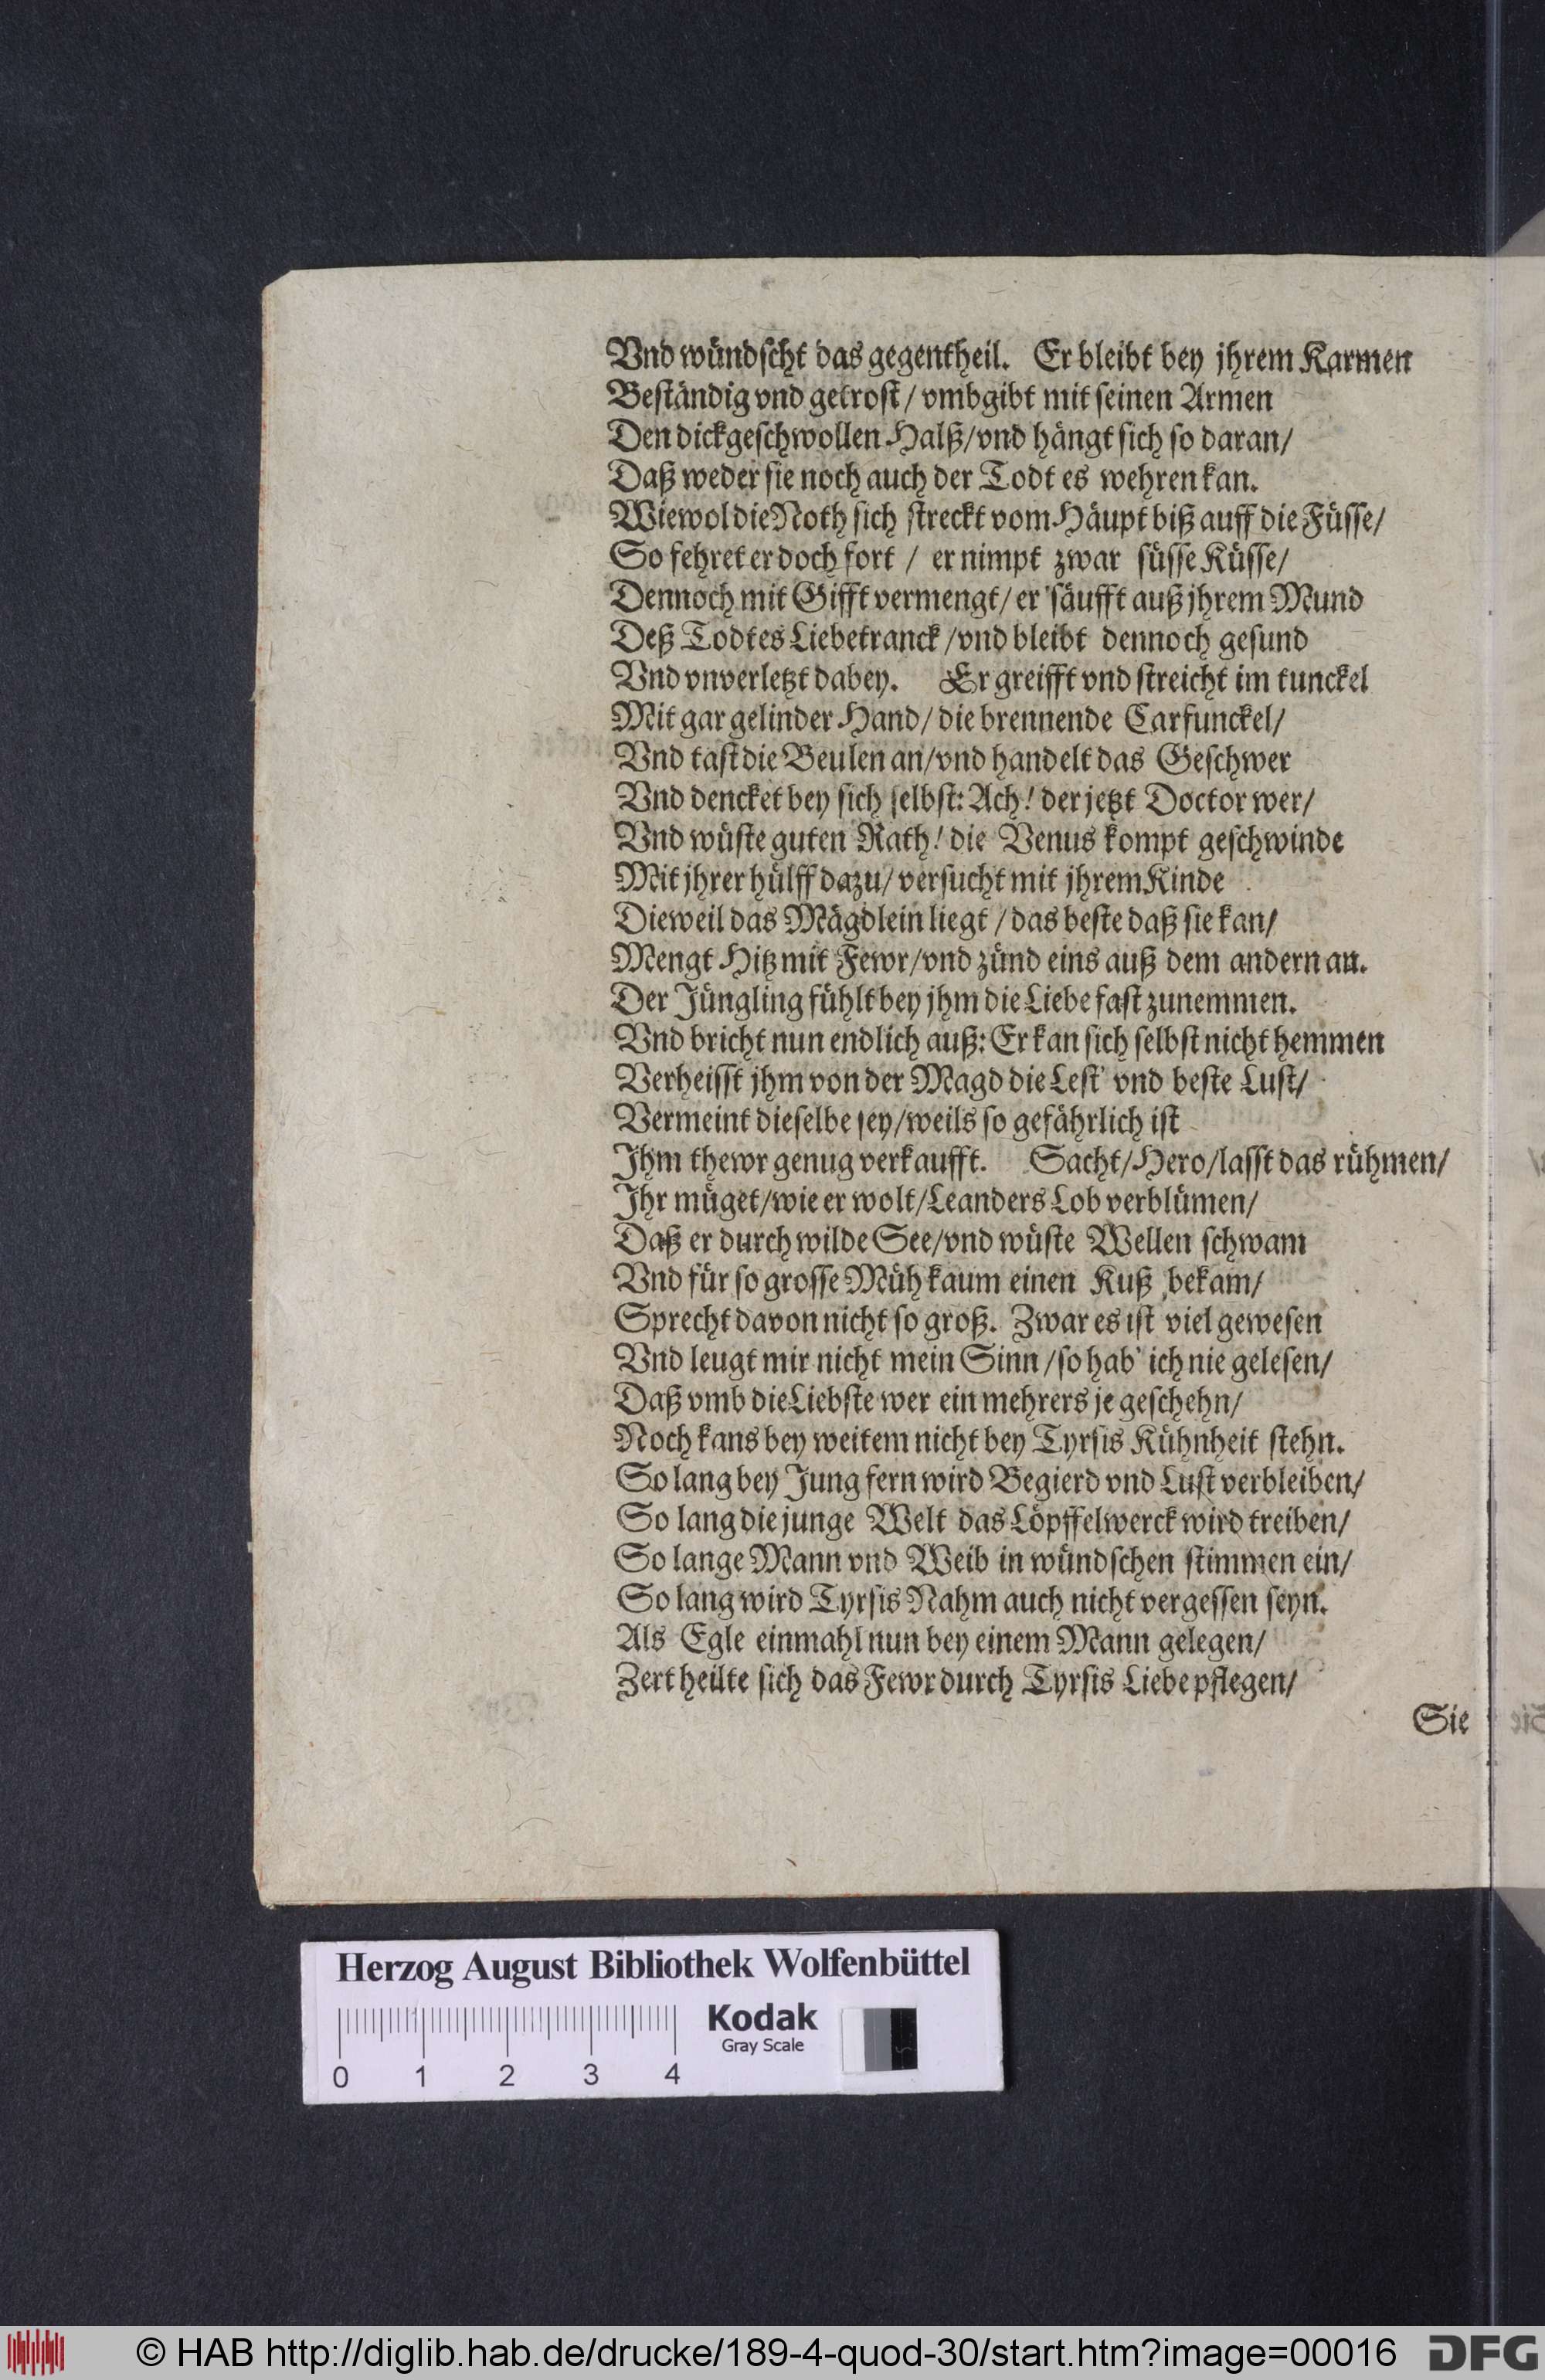 Vnd wündscht das gegentheil. Er bleibt bey jhrem Karmen
Beständig vnd getrost / vmbgibt mit seinen Armen
Den dickgeschwollen Halß/vnd hängt sich so daran/
Daß weder sie noch auch der Todt es wehren kan.
Wiewol die Noth sich streckt vom Häupt biß auff die Füsse/
So fehret er doch fort / er nimpt zwar süsse Küsse/
Dennoch mit Gifft vermengt/ er säufft auß jhrem Mund
Deß Todtes Liebetranck /vnd bleibt dennoch gesund
Vnd vnverletzt dabey. Er greifft vnd streicht im tunckel
Mit gar gelinder Hand/ die brennende Carfunckel/
Vnd tast die Beulen an/vnd handelt das Geschwer
Vnd dencket bey sich selbst: Ach! der jetzt Doctor wer/
Vnd wüste guten Rath! die Venus kompt geschwinde
Mit jhrer hülff dazu/ versucht mit jhrem Kinde
Dieweil das Mägdlein liegt /das beste daß sie kan/
Mengt Hitz mit Fewr/vnd zünd eins auß dem andern an.
Der Jüngling fühlt bey jhm die Liebe fast zunemmen.
Vnd bricht nun endlich auß: Er kan sich selbst nicht hemmen
Verheisst jhm von der Magd die Lest' vnd beste Lust/
Vermeint dieselbe sey/weils so gefährlich ist
Jhm thewr genug verkaufft. Sacht/Hero/lasst das rühmen/
Jhr müget/wie er wolt/Leanders Lob verblümen/
Daß er durch wilde See/vnd wüste Wellen schwam
Vnd für so grosse Müh kaum einen Kuß bekam/
Sprecht davon nicht so groß. Zwar es ist viel gewesen
Vnd leugt mir nicht mein Sinn /so hab' ich nie gelesen/
Daß vmb die Liebste wer ein mehrers je geschehn/
Noch kans bey weitem nicht bey Tyrsis Kühnheit stehn.
So lang bey Jungfern wird Begierd vnd Lust verbleiben/
So lang die junge Welt das Löpffelwerck wird treiben/
So lange Mann vnd Weib in wündschen stimmen ein/
So lang wird Tyrsis Nahm auch nicht vergessen seyn.
Als Egle einmahl nun bey einem Mann gelegen/
Zertheilte sich das Fewr durch Tyrsis Liebe pflegen/
Sie
Herzog August Bibliothek Wolfenbüttel
Kodak
Gray Scale
0 1 2 3 4
© HAB http://diglib.hab.de/drucke/189-4-quod-30/start.htm?image=00016
DFG